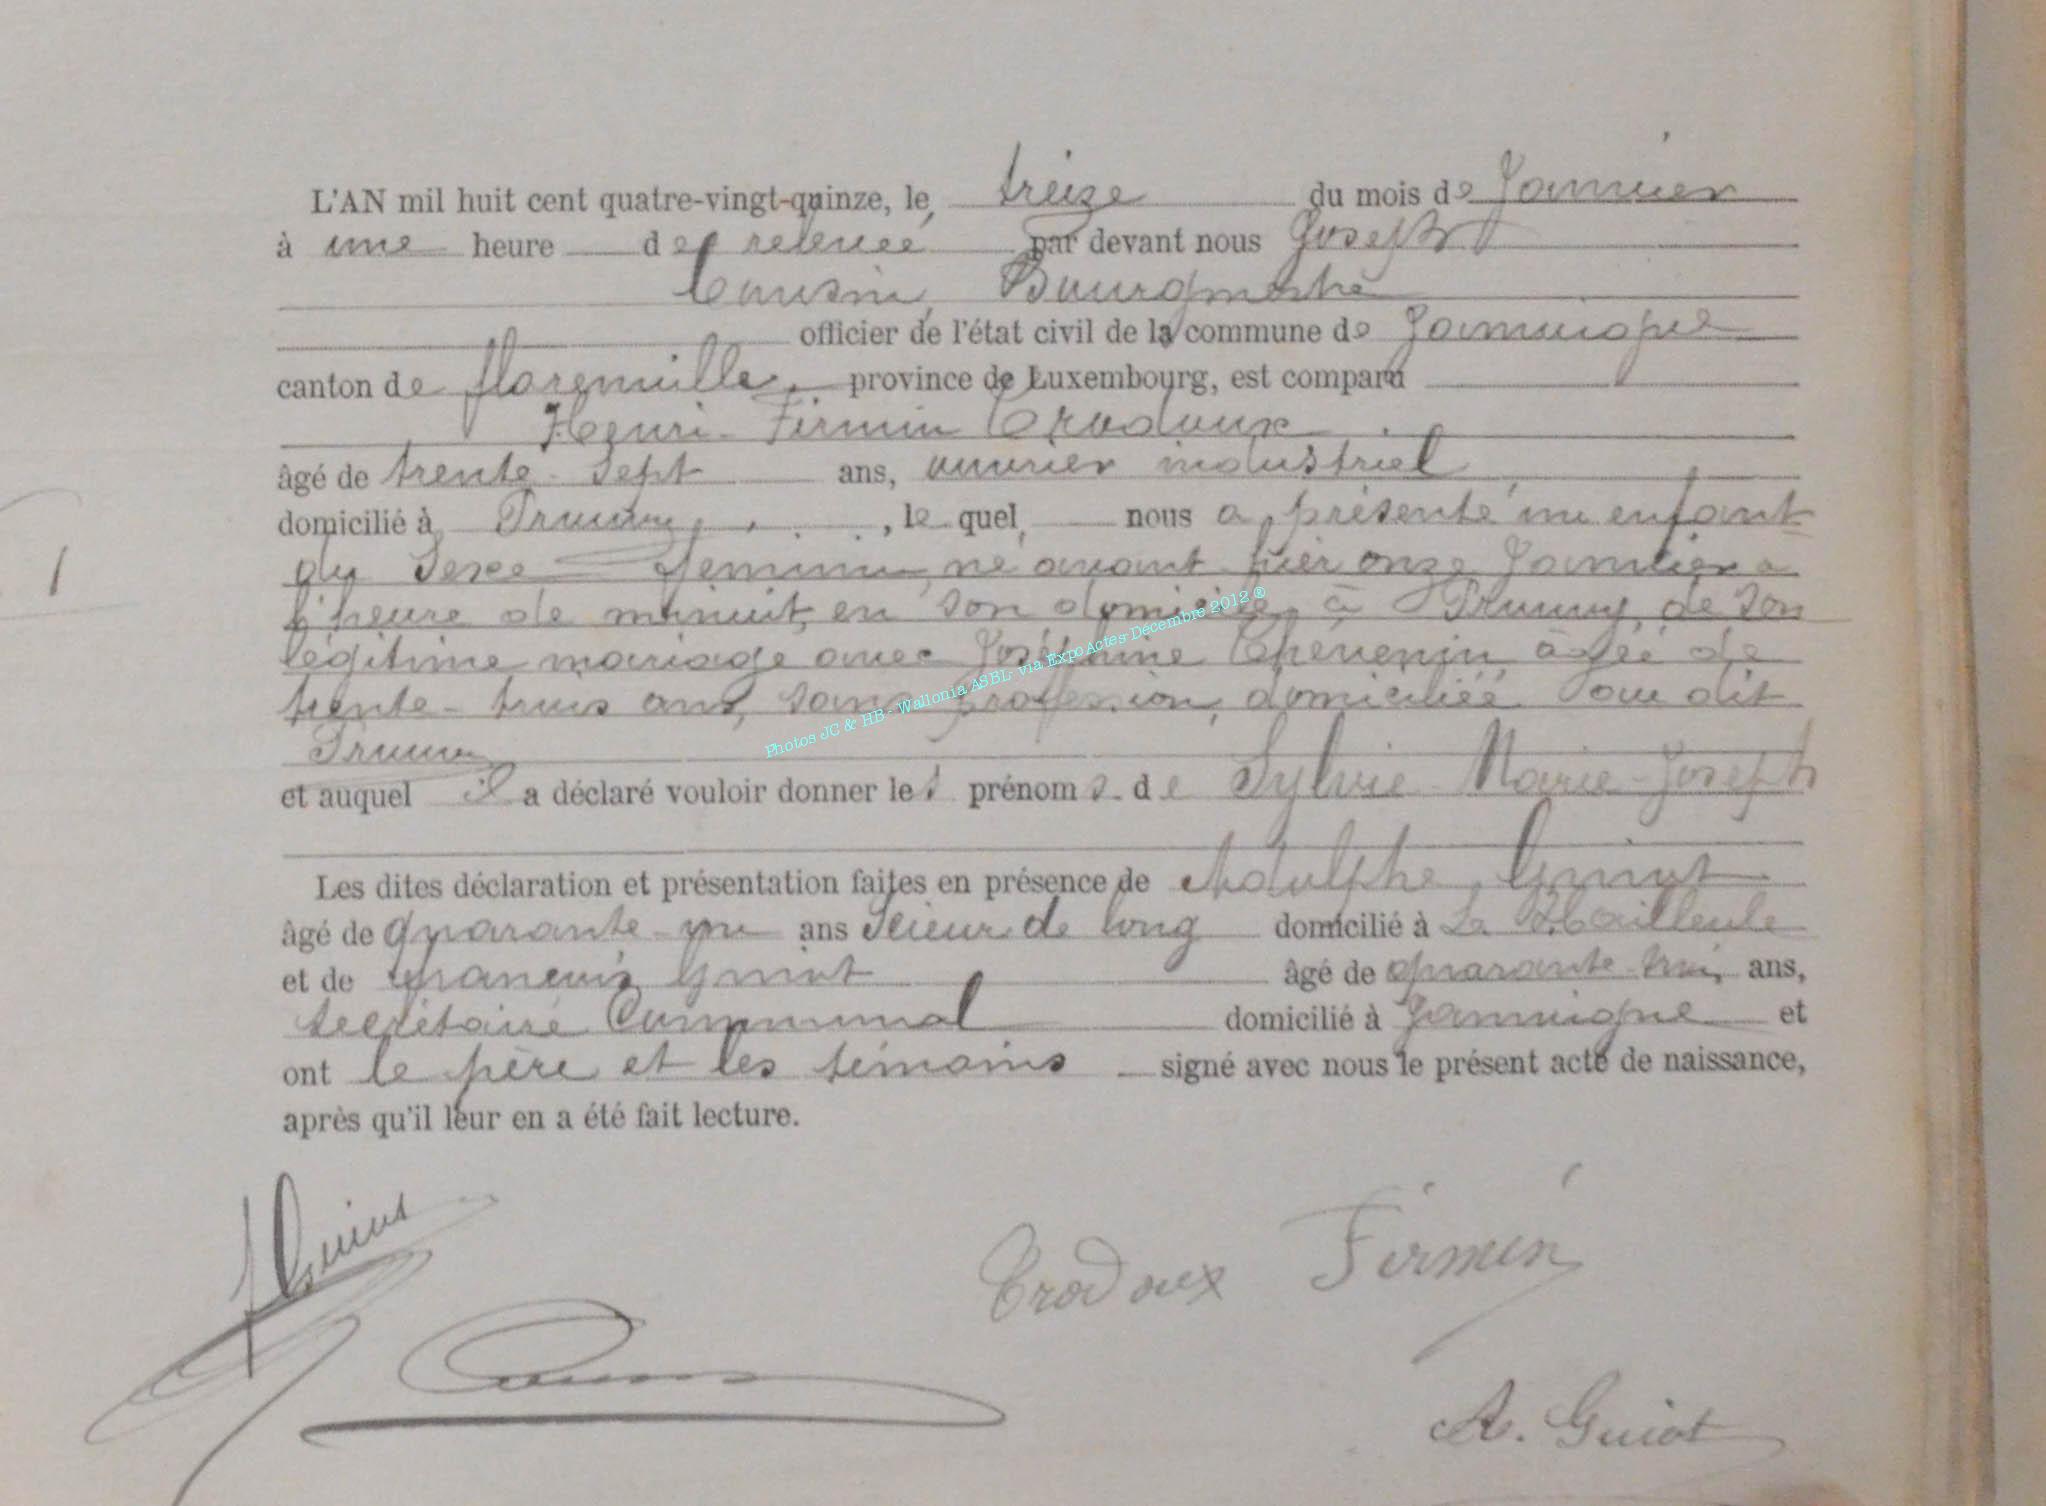 L'AN mil huit cent quatre-vingt-quinze, le treize du mois de Janvier
à une heure de relevée par devant nous Joseph
Cousin, Bourgmestre
officier de l'état civil de la commune de Jamoigne
canton de florenville, province de Luxembourg, est comparu
Henri-Firmin Crodoux
âgé de trente-sept ans, ouvrier industriel,
domicilié à Prouvy, le quel, nous a présenté un enfant
du Sexe feminin, né avant hier onze Janvier à
l'heure de minuit, en son domicile, à Prouvy, de son
légitime mariage avec Joséphine Thévenin, âgée de
trente-trois ans, sans profession, domiciliée au dit
Prouvy
et auquel il a déclaré vouloir donner les prénoms de Sylvie-Marie-Joseph
Les dites déclaration et présentation faites en présence de Adolphe Guiot
âgé de quarante-un ans Scieur de long domicilié à La Hailleule
et de françois Guiot âgé de quarante ans,
Secrétaire Communal domicilié à Jamoigne et
ont le père et les témoins signé avec nous le présent acte de naissance,
après qu'il leur en a été fait lecture.
1
F Guiot
Crodoux Firmin
Cousin
A. Guiot
Photos JC & HB - Wallonia ASBL- via ExpoActes-Décembre 2012 ®